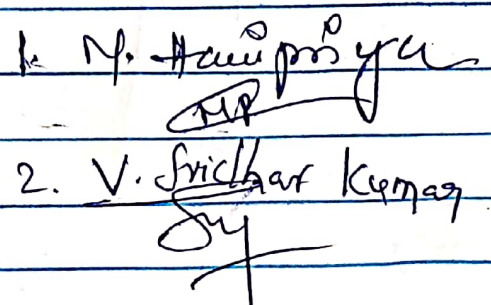 1. M. Haripriya
MP
2. V. Sridhar Kumar